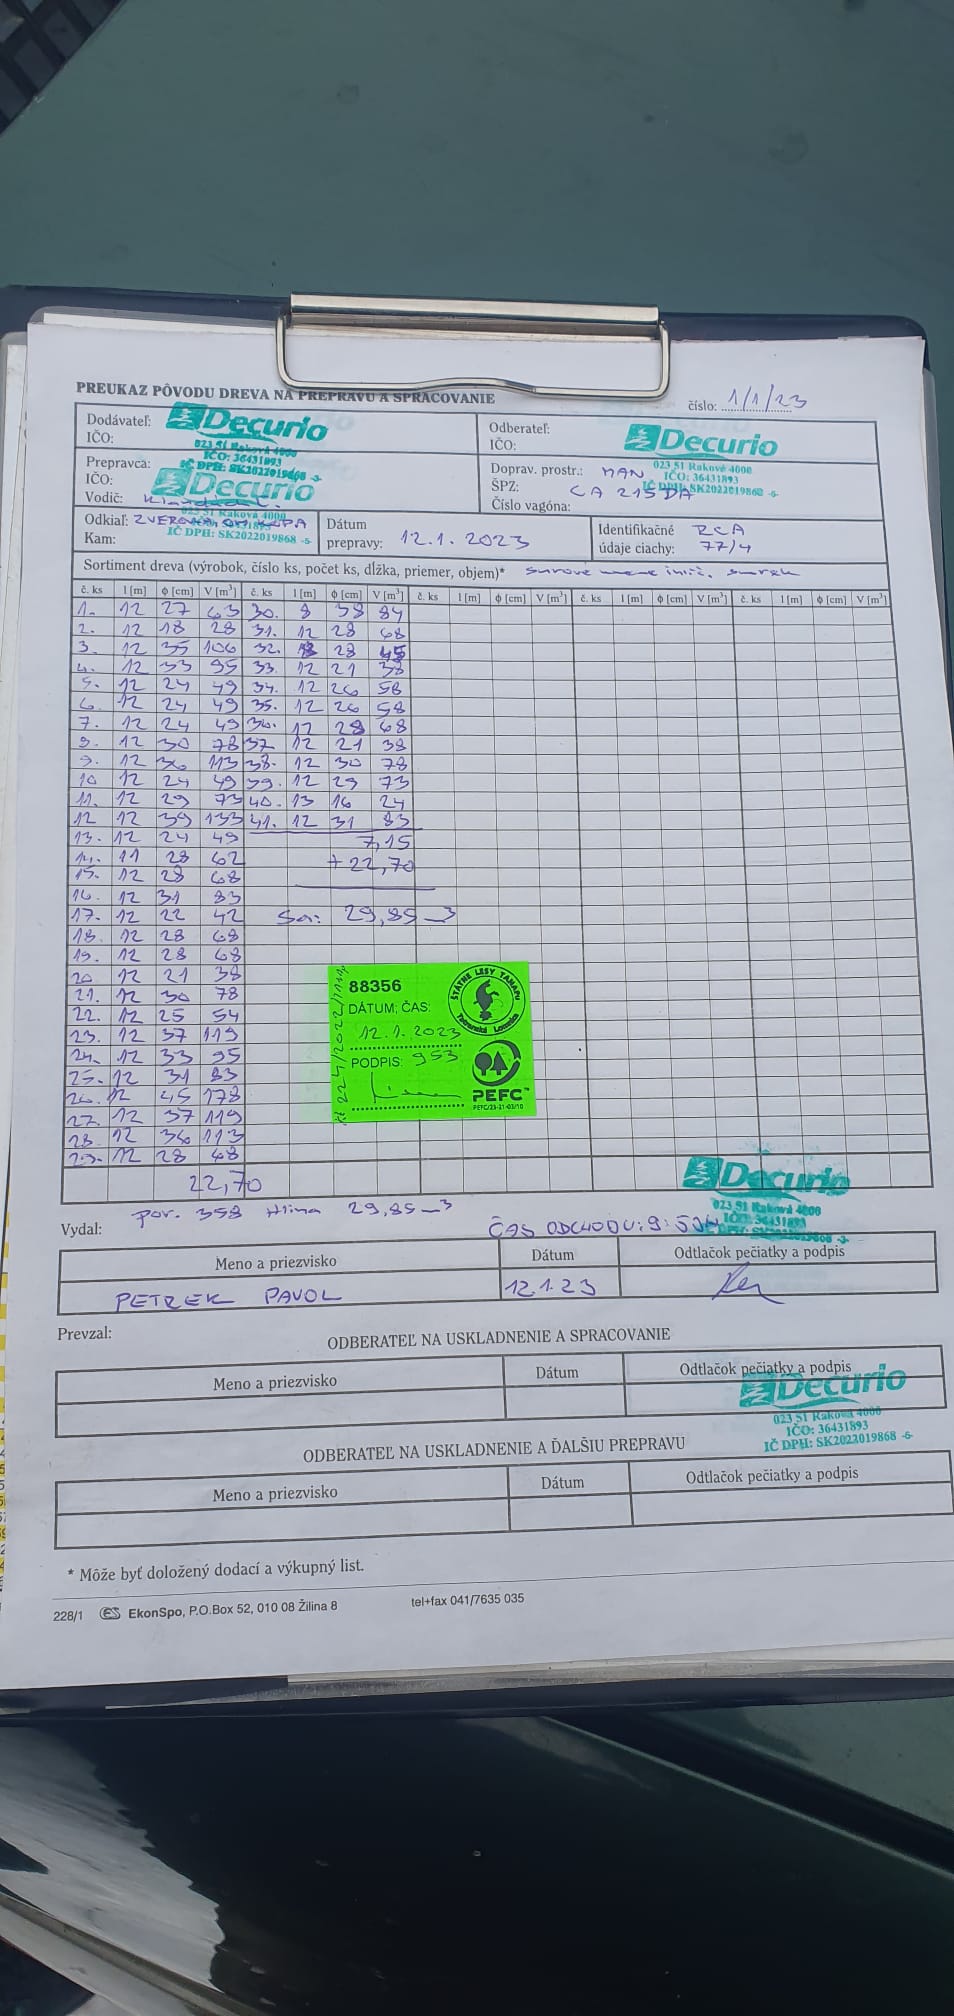 PREUKAZ PÔVODU DREVA NA PREPRAVU A SPRACOVANIE
číslo: 1/1/23
Dodávateľ: Decurio
IČO:
023 51 Raková 4000
IČO: 36431893
IČ DPH: SK2022019868 -3-
Odberateľ:
IČO:
Decurio
023 51 Raková 4000
IČO: 36431893
IČ DPH: SK2022019868 -6-
Prepravca:
IČO:
Decurio
Vodič:
IČ DPH: SK2022019868 -6-
Doprav. prostr.: MAN
ŠPZ: CA 215 DA
Číslo vagóna:
Odkiaľ:
Kam:
Dátum prepravy: 12.1.2023
Identifikačné údaje ciachy: RCA 77/4
Sortiment dreva (výrobok, číslo ks, počet ks, dĺžka, priemer, objem)* surové
č. ks l [m] ϕ [cm] V [m³] č. ks l [m] ϕ [cm] V [m³] č. ks l [m] ϕ [cm] V [m³] č. ks l [m] ϕ [cm] V [m³] č. ks l [m] ϕ [cm] V [m³]
1. 12 27 63 30. 8 38 84
2. 12 18 28 31. 12 28 68
3. 12 35 106 32. 28 45
4. 12 33 95 33. 12 21 38
5. 12 24 49 34. 12 26 58
6. 12 24 49 35. 12 26 58
7. 12 24 49 36. 12 28 68
12 30 78 37 12 21 38
9. 12 36 113 38. 12 30 78
10 12 24 49 39. 12 29 73
11. 12 29 73 40. 13 16 24
12 12 39 133 41. 12 31 83
13. 12 24 49 7,15
14. 11 28 62 + 22,70
15. 12 28 68
16. 12 31 83
17. 12 22 42 Sa: 29,85 m3
18. 12 28 68
19. 12 28 68
20 12 21 38
21. 12 30 78
22. 12 25 54
23. 12 37 119
24. 12 33 95
25. 12 31 83
26. 12 45 178
27. 12 37 119
28. 12 36 113
29. 12 28 68
22,70
88356
DÁTUM; ČAS:
12.1.2023
953
PODPIS:
ŠTÁTNE LESY TANAPu
Tatranská Lomnica
PEFC™
PEFC/23-21-03/10
por. 358 Hlina 29,85 m3
Vydal:
ČAS ODCHODU: 9:50
Decurio
023 51 Raková 4000
Meno a priezvisko Dátum Odtlačok pečiatky a podpis
PETREK PAVOL 12.1.23
Prevzal:
ODBERATEĽ NA USKLADNENIE A SPRACOVANIE
Meno a priezvisko Dátum Odtlačok pečiatky a podpis
Decurio
023 51 Raková 4000
IČO: 36431893
IČ DPH: SK2022019868 -6-
ODBERATEĽ NA USKLADNENIE A ĎALŠIU PREPRAVU
Meno a priezvisko Dátum Odtlačok pečiatky a podpis
* Môže byť doložený dodací a výkupný list.
228/1 ES EkonSpo, P.O.Box 52, 010 08 Žilina 8 tel+fax 041/7635 035